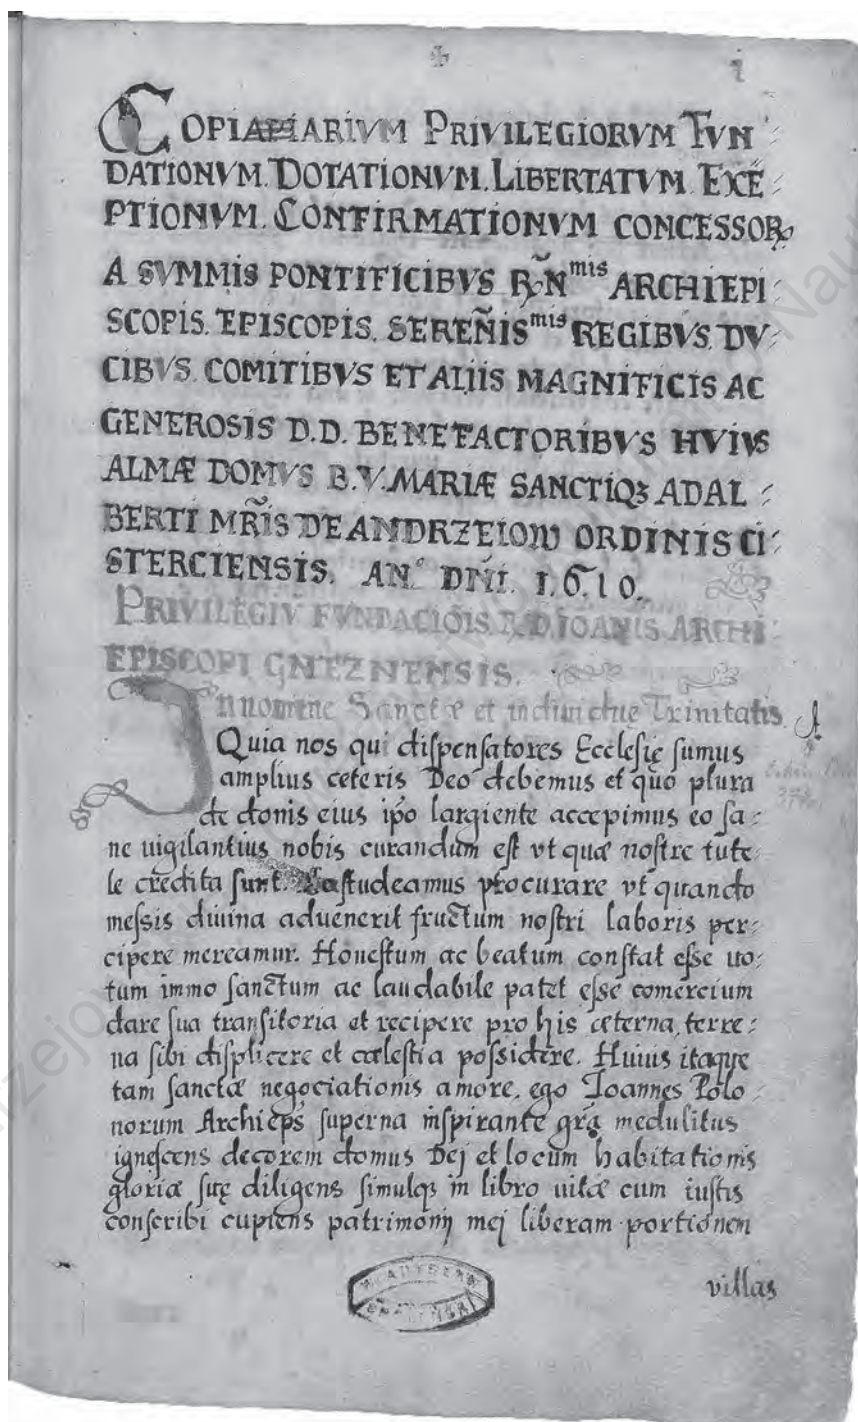 i
COPIAPIARIVM PRIVILEGIORVM FVN⸗
DATIONVM. DOTATIONVM. LIBERTATVM EXĒ⸗
PTIONVM. CONFIRMATIONVM CONCESSOꝜ
A SVMMIS PONTIFICIBVS R̃N^mis ARCHIEPI⸗
SCOPIS. EPISCOPIS. SEREÑIS^mis REGIBVS. DV⸗
CIBVS. COMITIBVS ET ALIIS MAGNIFICIS AC
GENEROSIS D.D. BENEFACTORIBVS HVIVS
ALMÆ DOMVS B.V. MARIÆ SANCTIQꝫ ADAL⸗
BERTI MR̃IS DE ANDRZEIOW ORDINIS CI⸗
STERCIENSIS. AN° DN̄I. 1.6.1 0.
PRIVILEGIV̄ FVNDACIŌIS R.D. IOANIS ARCHI⸗
EPISCOPI GNEZNENSIS.
In nomine Sanctæ et indiuiduę Trinitatis.
Quia nos qui dispensatores Ecclesię sumus
amplius ceteris Deo debemus et quo plura
de donis eius ip̄o largiente accepimus eo sa⸗
ne uigilantius nobis curandum est vt quæ nostre tute⸗
le credita sunt. studeamus procurare vt quando
messis diuina aduenerit fructum nostri laboris per⸗
cipere mereamur. Honestum ac beatum constat esse uo⸗
tum immo sanctum ac laudabile patet esse comercium
dare sua transitoria et recipere pro his æterna, terre⸗
na sibi displicere et cælestia possidere. Huius itaque
tam sanctæ negociationis amore. ego Joannes Polo⸗
norum Archiep̄s superna inspirante gr̄a medulitus
ignescens decorem domus Dej et locum habitationis
gloriæ suę diligens simulqꝫ in libro uitæ cum iustis
conscribi cupiens patrimonij mej liberam portionem
villas